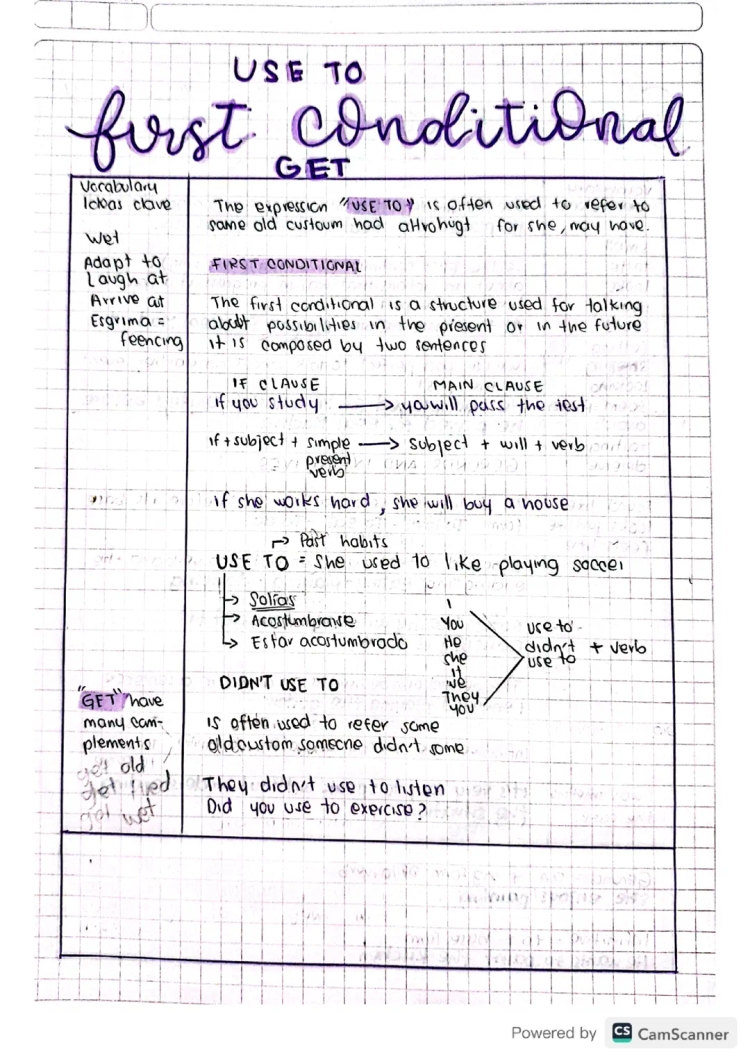 USE TO
first conditional
GET
Vocabulary
Ideas clave
Wet
Adapt to
Laugh at
Arrive at
Esgrima =
feencing
"GET" have
many com-
plements
get old
get tired
get wet
The expression "USE TO" is often used to refer to
some old custoum had for she, may have.
FIRST CONDITIONAL
The first conditional is a structure used for talking
about possibilities in the present or in the future
it is composed by two sentences
IF CLAUSE MAIN CLAUSE
if you study → you will pass the test
if + subject + simple → subject + will + verb
present
verb
if she works hard, she will buy a house
→ Past habits
USE TO = she used to like playing soccer
→ Solias
→ Acostumbrarse
→ Estar acostumbrado
I
You
He
she
it
we
They
you
use to
didn't + verb
use to
DIDN'T USE TO
is often used to refer some
old custom someone didn't some
They didn't use to listen
Did you use to exercise?
Powered by CS CamScanner